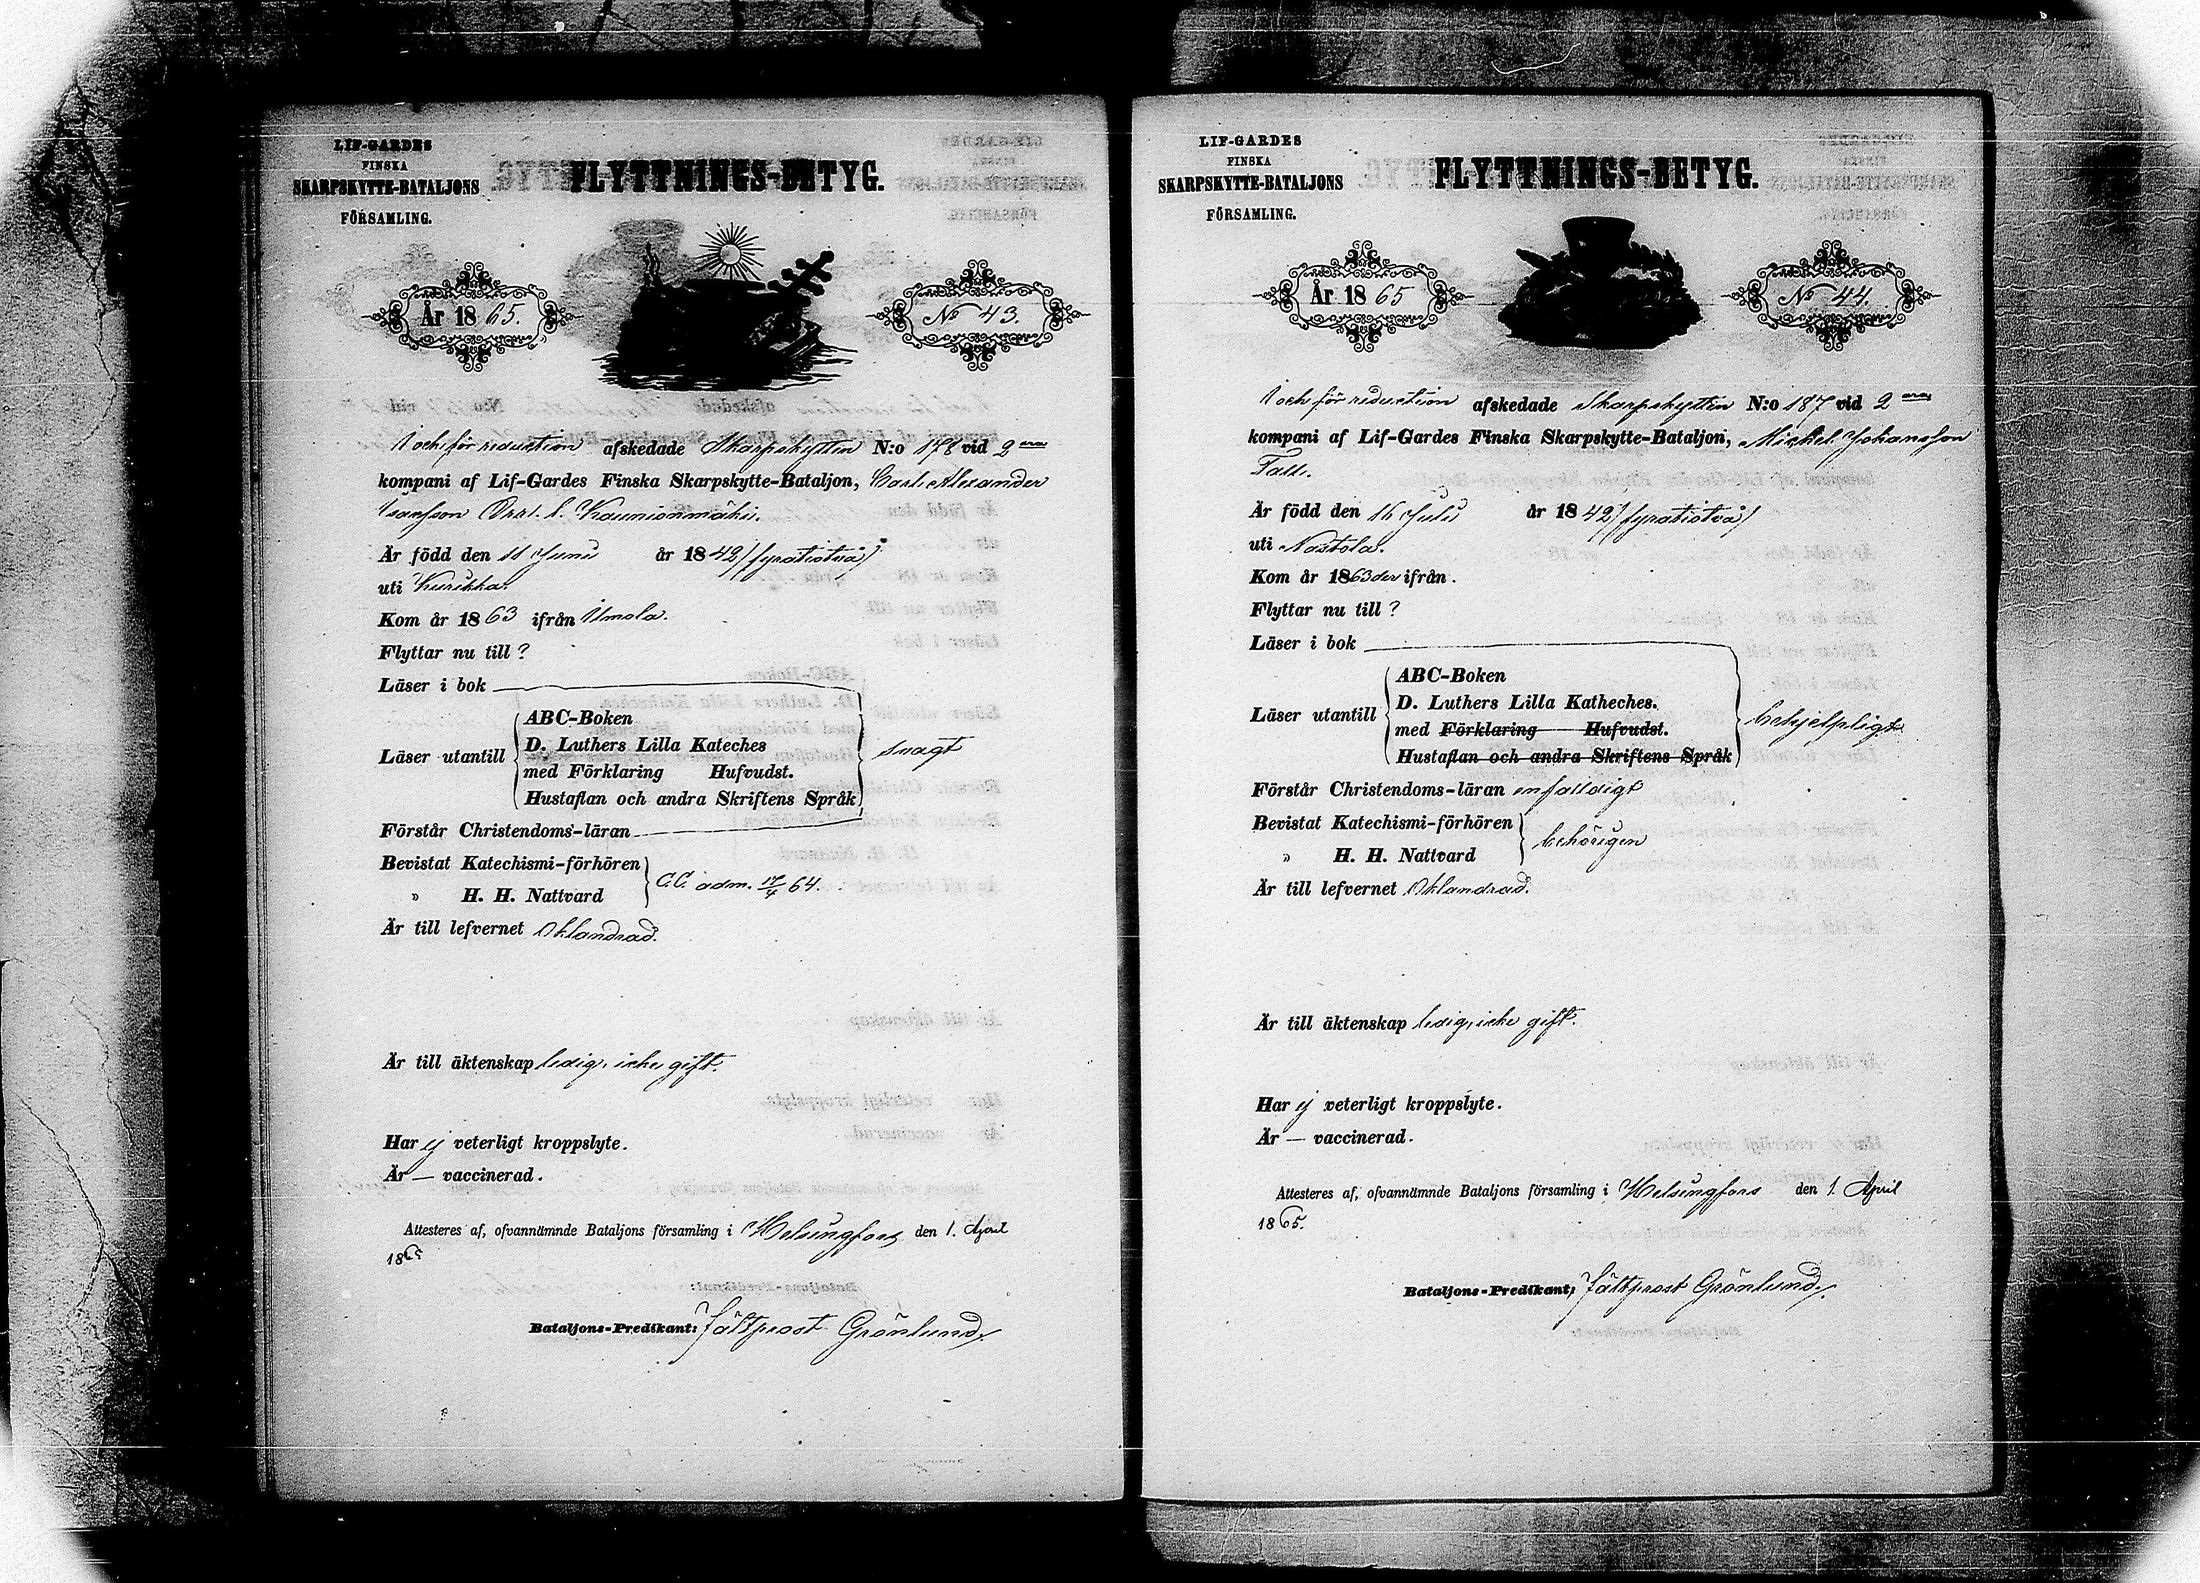 LIF-GARDES
FINSKA
SKARPSKYTTE-BATALJONS
FÖRSAMLING.
FLYTTNINGS-BETYG.
År 1865.
No 43.
I och för reduction afskedade Skarpskytten N:o 178 vid 2
kompani af Lif-Gardes Finska Skarpskytte-Bataljon, Carl Alexander
Isaksson
Är född den 11 Juni år 1842 /fyratiotvå/
uti Kurikka.
Kom år 1863 ifrån Ilmola.
Flyttar nu till?
Läser i bok
ABC-Boken
Läser utantill D. Luthers Lilla Kateches svagt
med Förklaring Hufvudst.
Hustaflan och andra Skriftens Språk
Förstår Christendoms-läran
Bevistat Katechismi-förhören
" H. H. Nattvard C.C. adm. 17/4 64.
Är till lefvernet Oklandrad.
Är till äktenskap ledig, icke gift.
Har ej veterligt kroppslyte.
Är — vaccinerad.
Attesteres af, ofvannämnde Bataljons församling i Helsingfors den 1. April
1865
Bataljons-Predikant: Fältprost Grönlund.
LIF-GARDES
FINSKA
SKARPSKYTTE-BATALJONS
FÖRSAMLING.
FLYTTNINGS-BETYG.
År 1865
No 44.
I och för reduction afskedade Skarpskytten N:o 187 vid 2
kompani af Lif-Gardes Finska Skarpskytte-Bataljon, Mickel Johansson
Fall.
Är född den 16 Juli år 1842 /fyratiotvå/
uti Nastola.
Kom år 1863 der ifrån.
Flyttar nu till?
Läser i bok
ABC-Boken
D. Luthers Lilla Katheches.
Läser utantill med Förklaring Hufvudst. behjelpligt
Hustaflan och andra Skriftens Språk
Förstår Christendoms-läran enfaldigt
Bevistat Katechismi-förhören behörigen
" H. H. Nattvard
Är till lefvernet Oklandrad.
Är till äktenskap ledig, icke gift.
Har ej veterligt kroppslyte.
Är — vaccinerad.
Attesteres af, ofvannämnde Bataljons församling i Helsingfors den 1. April
1865.
Bataljons-Predikant: Fältprost Grönlund.